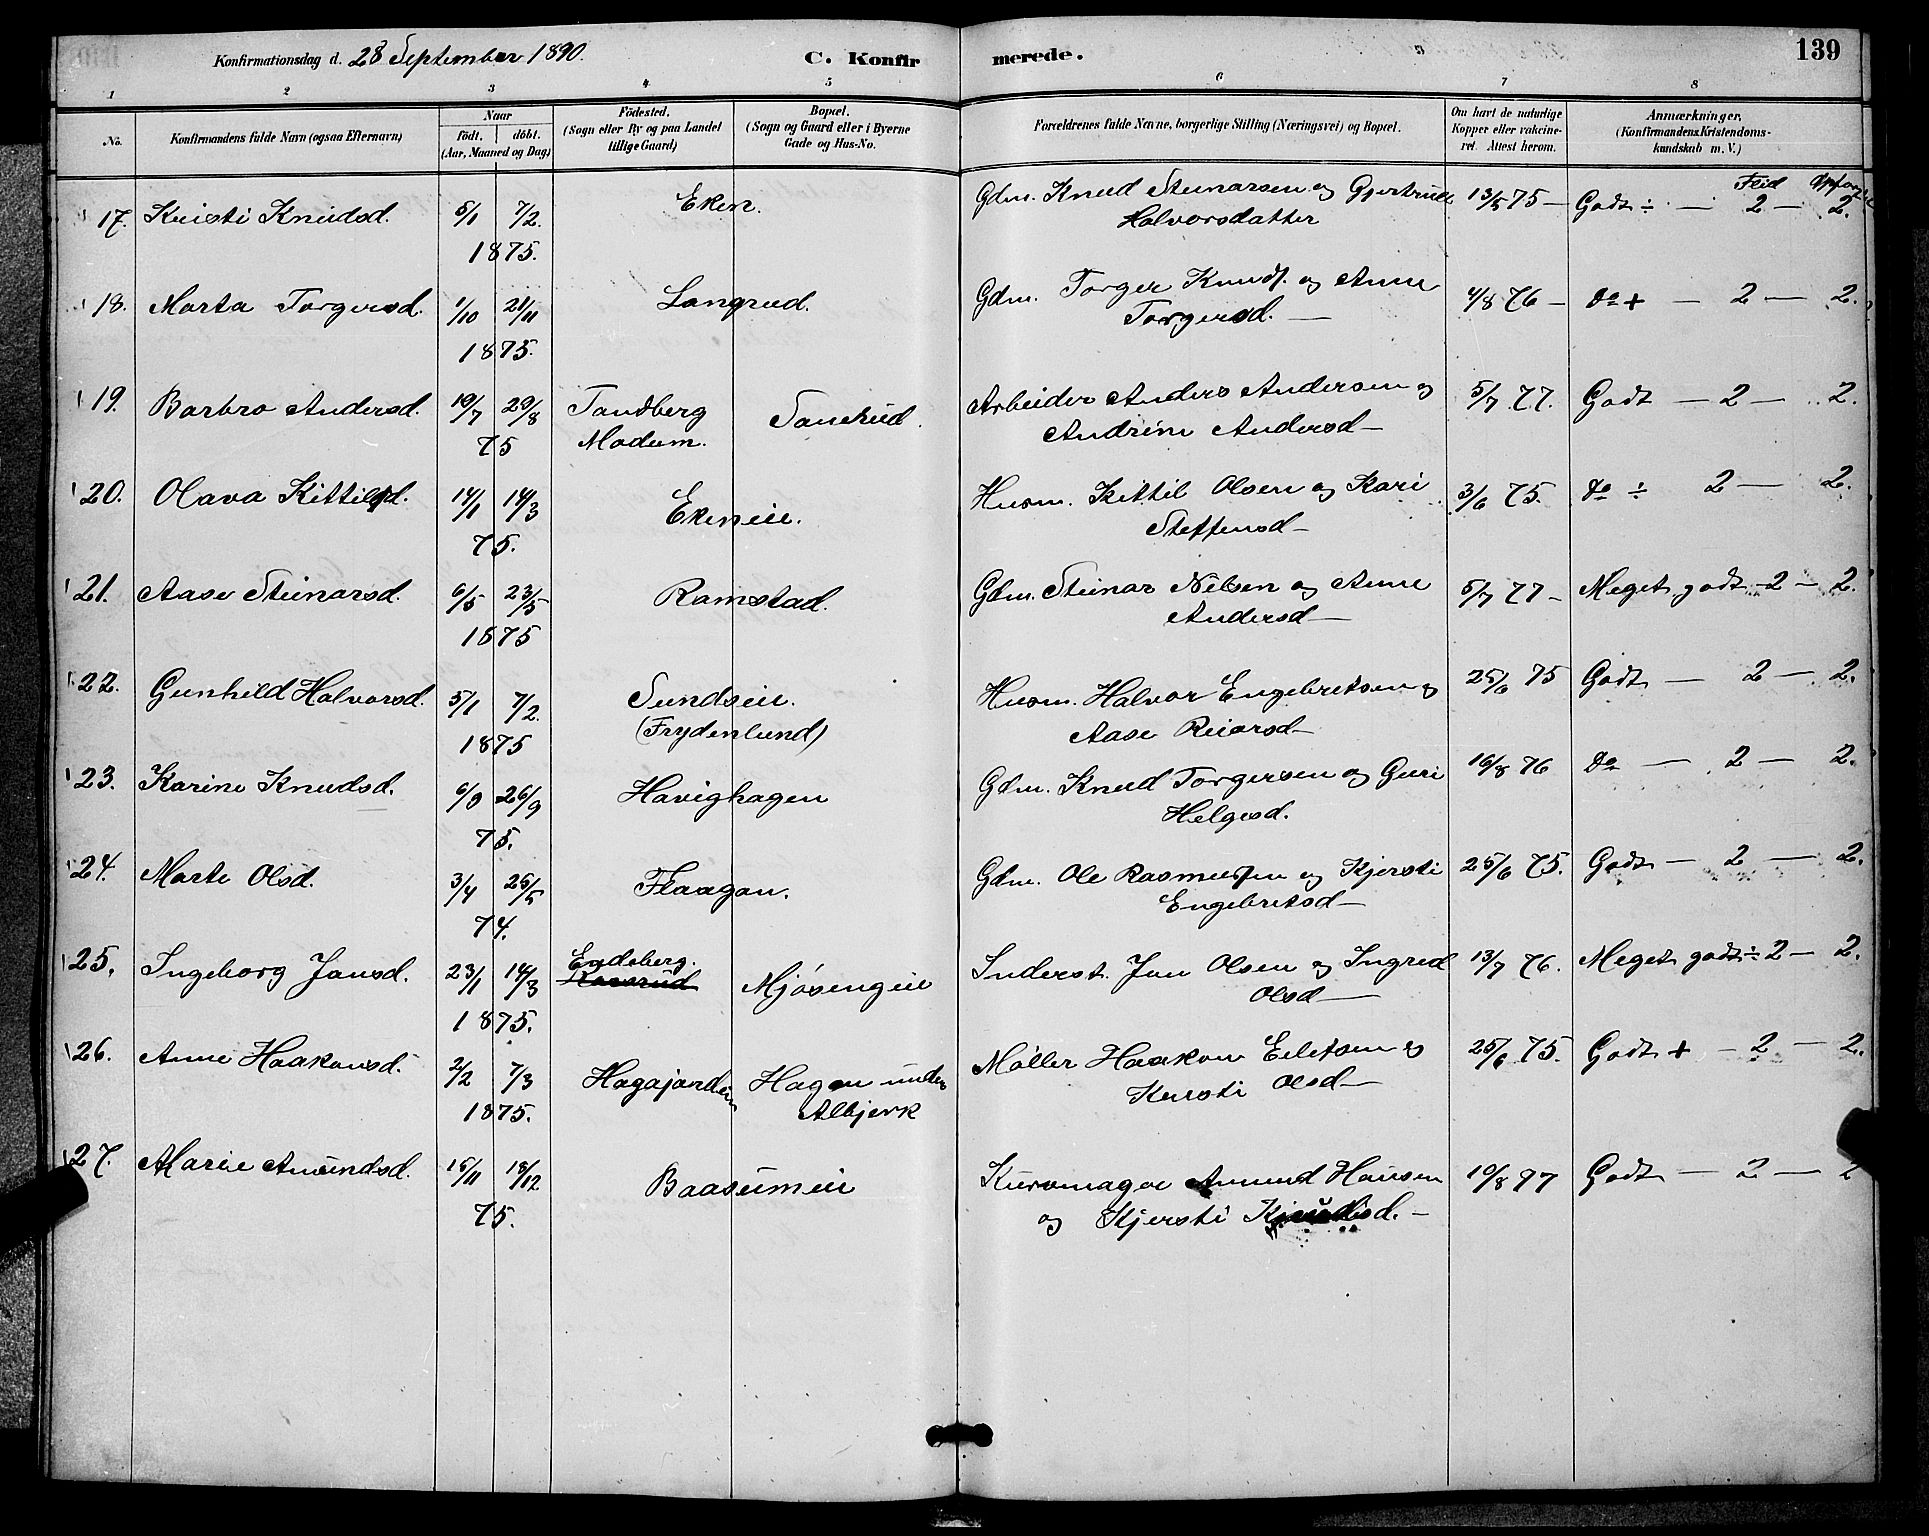 Konfirmationsdag d. 28 September 1890. C. Konfirmerede. 139
1 2 3 4 5 6 7 8
No. Konfirmandens fulde Navn (ogsaa Efternavn) Naar födt. döbt. (Aar, Maaned og Dag) Födested. (Sogn eller By og paa Landet tillige Gaard) Bopæl. (Sogn og Gaard eller i Byerne Gade og Hus-No. Forældrenes fulde Navne, borgerlige Stilling (Næringsvei) og Bopæl. Om havt de naturlige Kopper eller vakcineret. Attest herom. Anmærkninger, (Konfirmandens Kristendomskundskab m. V.)
Flid
17. Kristi Knudsd. 5/1 7/2. Eken. Gdm. Knud Steinarsen og Gjertrud 13/5 75 — Godt ÷ — 2 — 2.
1875. Halvorsdatter
18. Marta Torgersd. 1/10 21/11 Langrud. Gdm. Torger Knuds. og Anne 4/8 76 — do + — 2 — 2.
1875. Torgersd. —
19. Barbro Andersd. 19/7 29/8 Tandberg Sanerud. Arbeider Anders Andersen og 5/7 77. Godt — 2 — 2.
75 Modum. Andrine Andersd —
20. Olava Kittilsd. 14/1 14/3 Ekeneie. Husm. Kittil Olsen og Kari 3/6 75. do ÷ 2 — 2.
75. Steffensd —
21. Aase Steinarsd. 6/5 23/5 Ramstad. Gdm. Steinar Nilsen og Anne 5/7 77 — Meget godt — 2 — 2.
1875 Andersd —
22. Gunhild Halvorsd. 5/1 7/2. Sundseie. Husm. Halvor Engebretsen og 25/6 75 Godt — 2 — 2.
1875 (Frydenlund) Aase Reiarsd —
23. Karine Knudsd. 6/9 26/9 Havighagen Gdm. Knud Torgersen og Guri 16/8 76 do — 2 — 2.
75. Helgesd.
24. Marte Olsd. 3/4 25/5 Flaagan. Gdm. Ole Rasmussen og Kjersti 25/6 75. Godt — 2 — 2.
74. Engebretsd —
25. Ingeborg Jonsd. 23/1 14/3 Endeberg. Mjøsengeie Inderst. Jon Olsen og Ingrid 13/7 76. Meget godt ÷ 2 — 2.
1875. Olsd —
26. Anne Haakonsd. 2/2 7/3 Hagen under Møller Haakon Eiletsen og 25/6 75. Godt + — 2 — 2.
1875. Albjerk Kersti Olsd —
27. Marie Amundsd. 15/11 18/12 Baasumeie Kurvmager Amund Hansen 19/8 97 Godt — 2 — 2
75. og Kjersti Knudsd. —